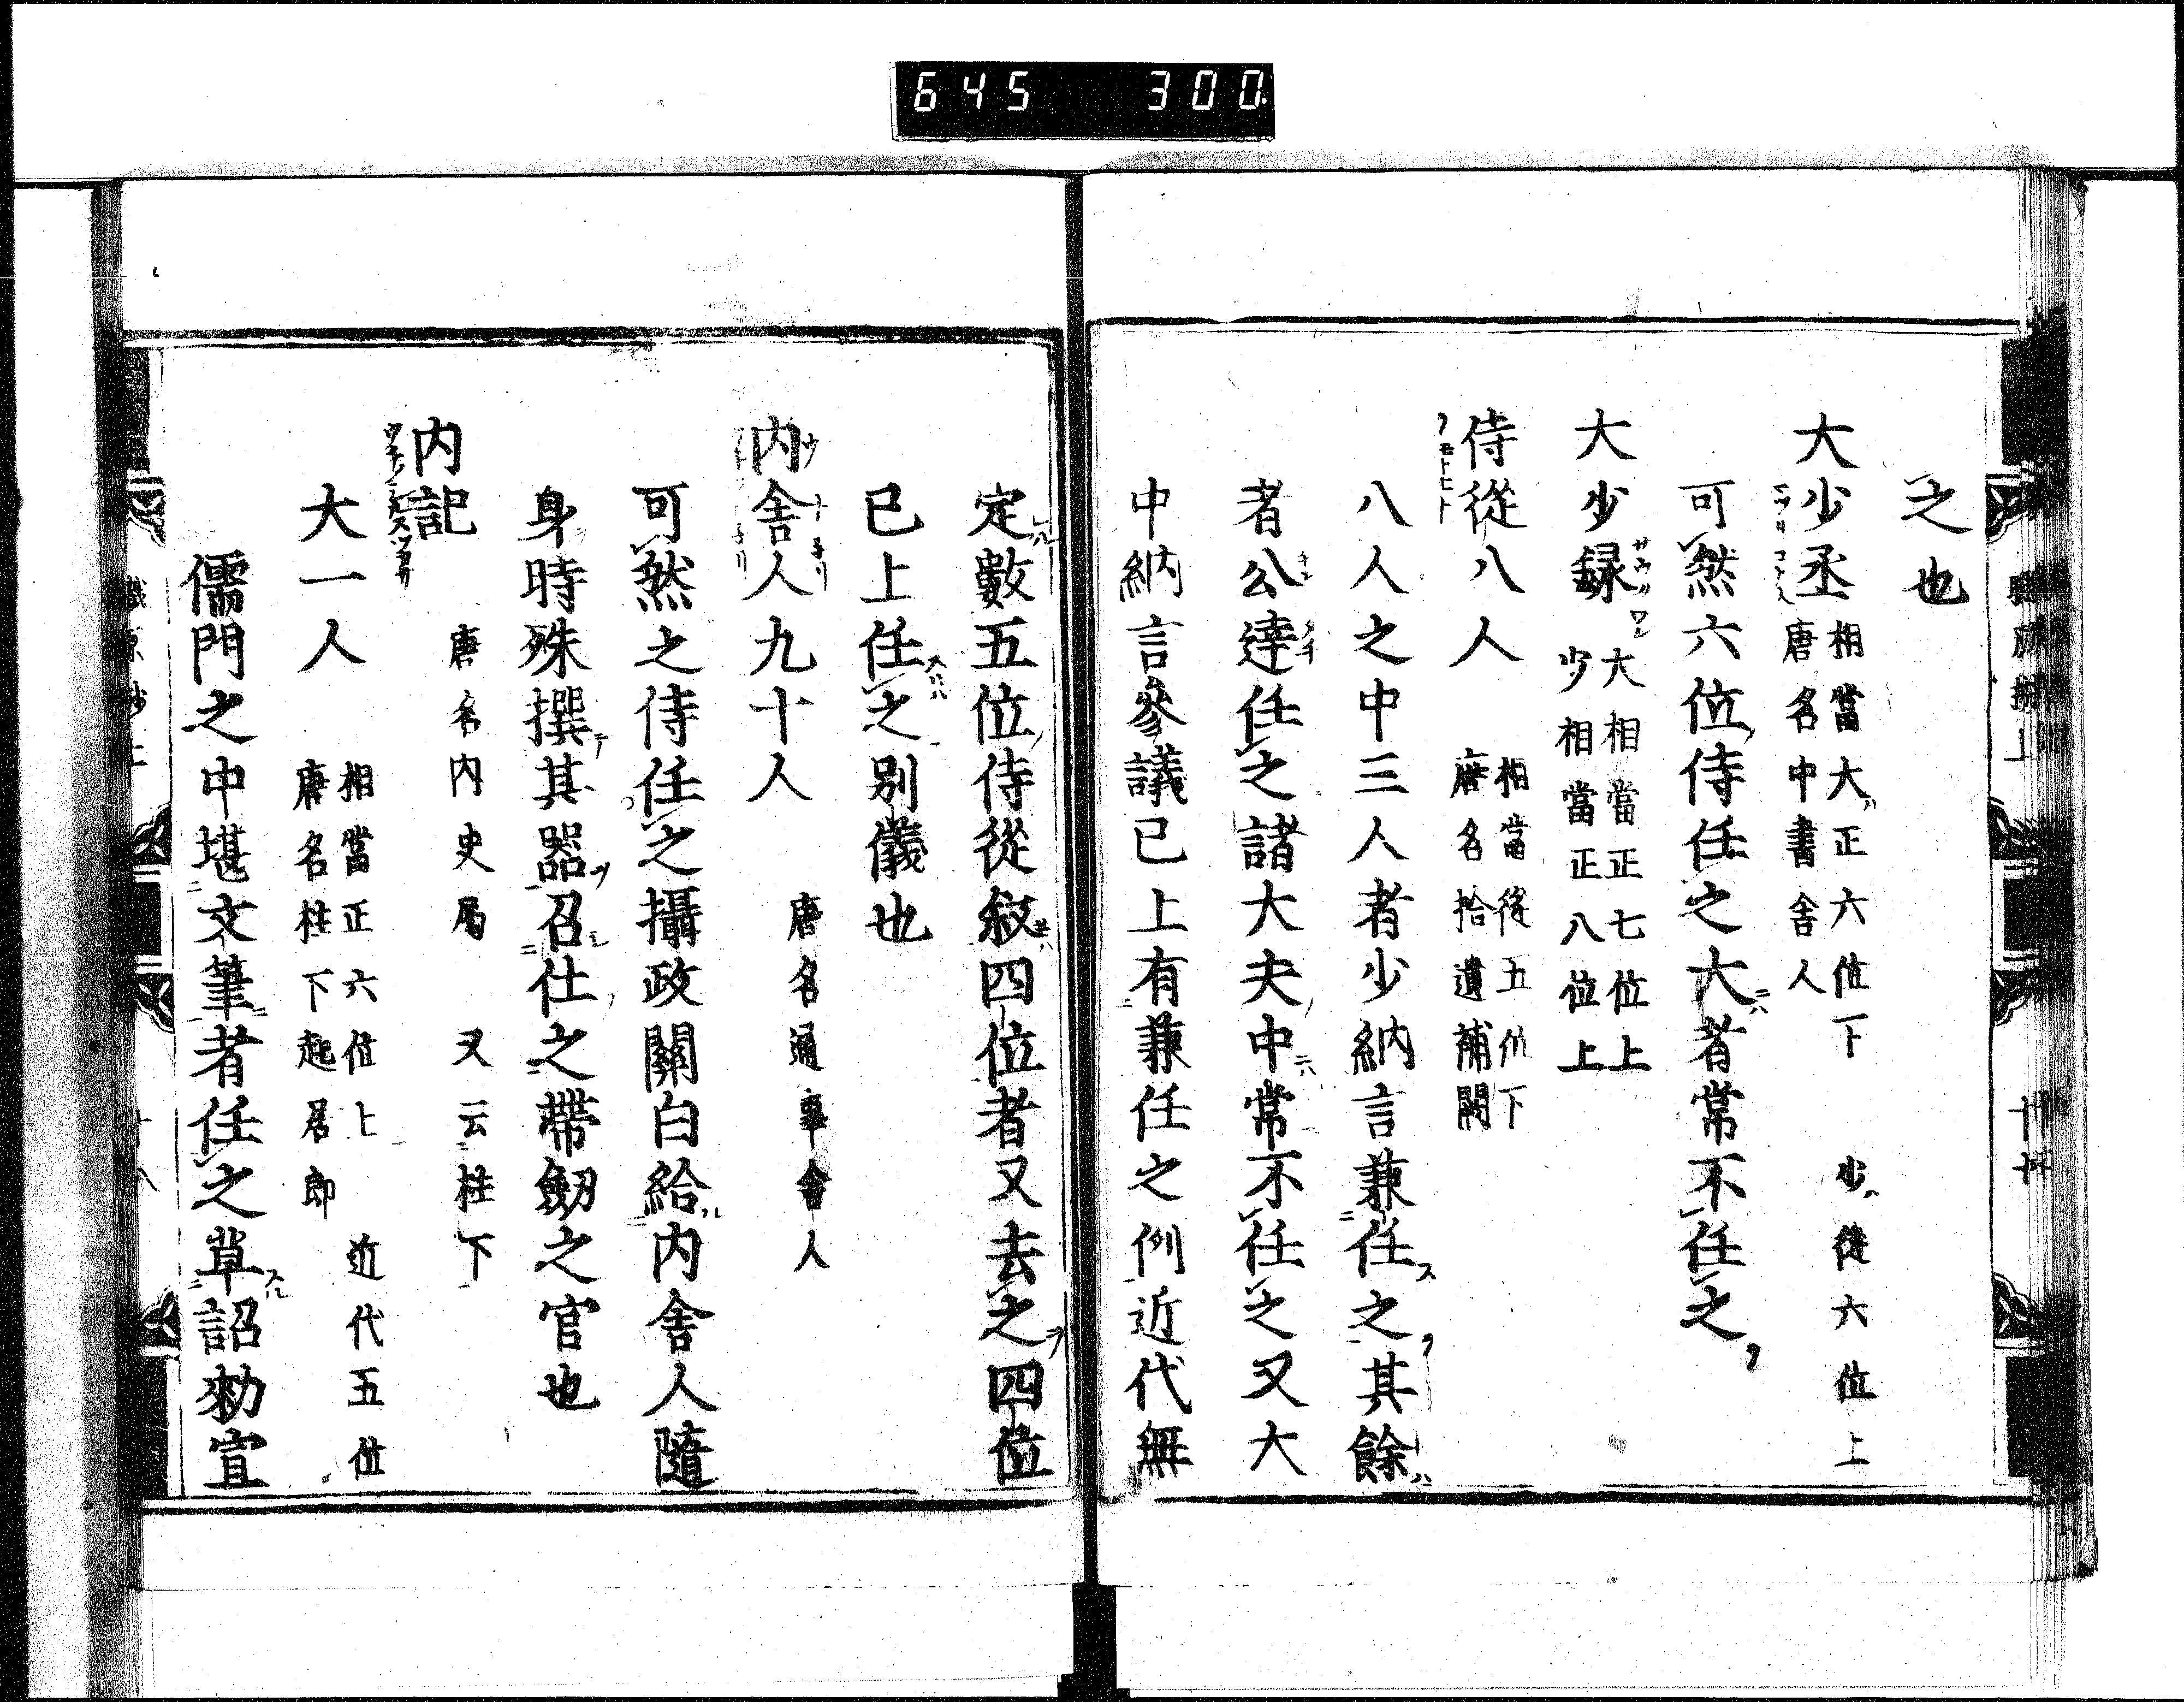 645 300
之也
大少丞 相當大正六位下 少從六位上
唐名中書舍人
可然六位侍任之大者常不任之
大少録 大相當正七位上
少相當正八位上
侍從八人 相當從五位下
唐名拾遺補闕
八人之中三人者少納言兼任之其餘
者公達任之諸大夫中常不任之又大
中納言參議已上有兼任之例近代無
定數五位侍從叙四位者又去之四位
已上任之別儀也
内舍人九十人 唐名通事舍人
可然之侍任之攝政關白給内舍人隨
身時殊撰其器召仕之帶劔之官也
内記 唐名内史局 又云柱下
大一人 相當正六位上 近代五位
唐名柱下起居郎
儒門之中堪文筆者任之草詔勅宣